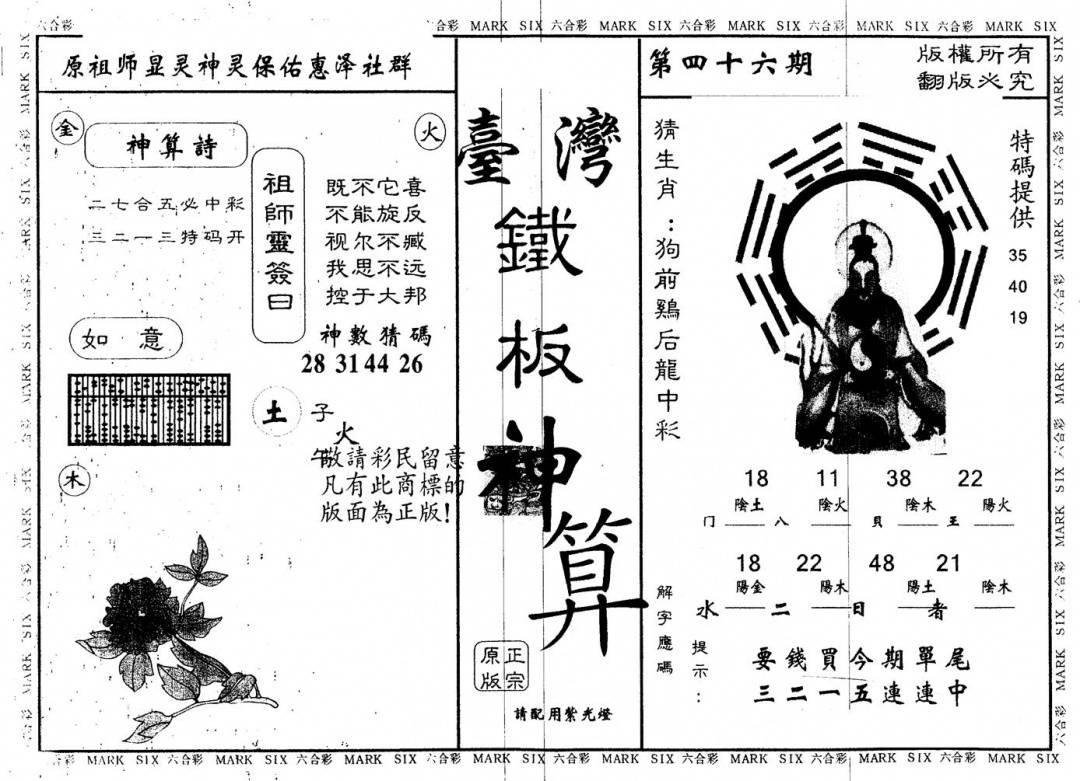 六合彩 MARK SIX 六合彩 MARK SIX 六合彩 MARK SIX 六合彩 MARK SIX 六合彩 MARK SIX
原祖师显灵神灵保佑惠泽社群
金
神算詩
二七合五必中彩
三二一三特码开
火
祖師靈簽曰
既不它喜
不能旋反
视尔不臧
我思不远
控于大邦
神數猜碼
28 31 44 26
如意
土
子
火
午
木
敬請彩民留意
凡有此商標的
版面為正版!
臺灣
鐵
板
神
算
正宗
原版
請配用紫光燈
第四十六期
版權所有
翻版必究
猜生肖:狗前鷄后龍中彩
特碼提供
35
40
19
18 11 38 22
陰土 陰火 陰木 陽火
门 八 貝 王
18 22 48 21
陽金 陽木 陽土 陰木
水 二 日 者
解字應碼
提示:
要錢買今期單尾
三二一五連連中
六合彩 MARK SIX 六合彩 MARK SIX 六合彩 MARK SIX 六合彩 MARK SIX 六合彩 MARK SIX 六合彩 MARK SIX 六合彩 MARK SIX 六合彩 MARK SIX